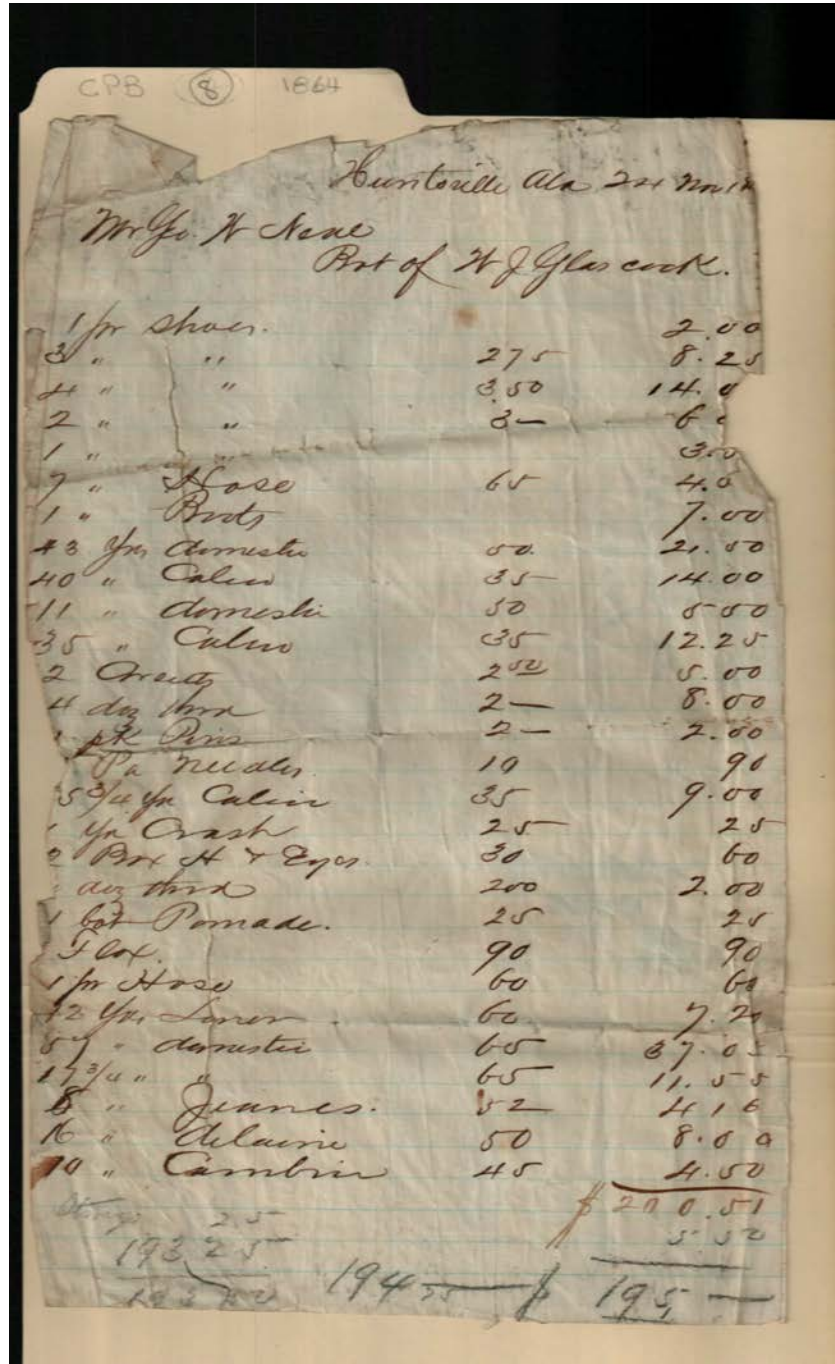 CPB (8) 1864
Huntsville Ala 24 Nov 18
Mr Geo. W Neal
Bot of W J Glascock.
1 pr Shoes. 2.00
3 " " 275 8.25
4 " " 3.50 14.0
2 " " 3— 6 0
1 " " 3.00
7 " Hose 65 4.0
1 " Boots 7.00
43 Yrs domestic 50. 21.50
40 " Calico 35 14.00
11 " domestic 50 5 50
35 " Calico 35 12.25
2 Corsets 2 50 5.00
4 doz thrd 2— 8.00
pk Pins 2— 2.00
Pa Needles 10 90
5 3/4 yr Calico 35 9.00
1 yr Crash 25 25
2 Box H & Eyes. 30 60
doz thrd 200 2.00
1 bot Pomade. 25 25
Flox. 90 90
1 pr Hose 60 60
12 Yrs Linen 60 7.20
57 " domestic 65 37.05
17 3/4 " " 65 11.55
8 " Jeanes. 52 4 16
16 " delaine 50 8.00
10 " Cambric 45 4.50
$ 200.51
25 5 50
193 25
194 25 $ 195 —